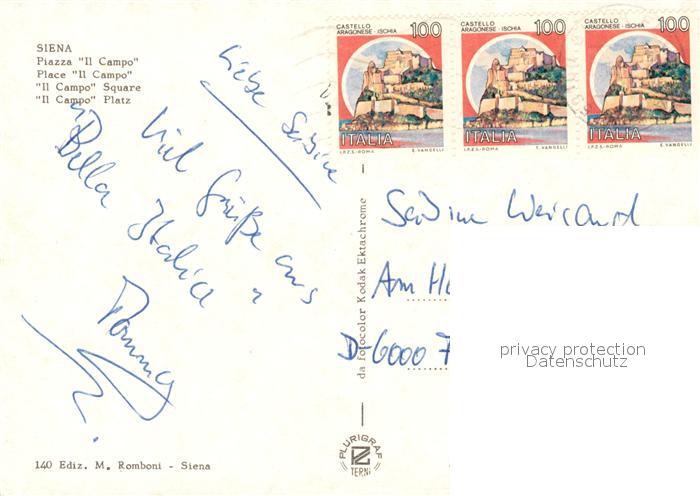 SIENA
Piazza "Il Campo"
Place "Il Campo"
"Il Campo" Square
"Il Campo" Platz
Liebe Sabine
Viel Grüße aus
"Bella Italia"
Tommy
CASTELLO ARAGONESE - ISCHIA 100
ITALIA
I.P.Z.S. - ROMA E. VANGELLI
CASTELLO ARAGONESE - ISCHIA 100
ITALIA
I.P.Z.S. - ROMA E. VANGELLI
CASTELLO ARAGONESE - ISCHIA 100
ITALIA
I.P.Z.S. - ROMA E. VANGELLI
Sabine
Am
D-6000
privacy protection
Datenschutz
da fotocolor Kodak Ektachrome
PLURIGRAF
TERNI
140 Ediz. M. Romboni - Siena